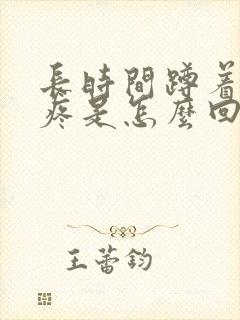 長時間蹲着
疼是怎麼回
王蕾鈞